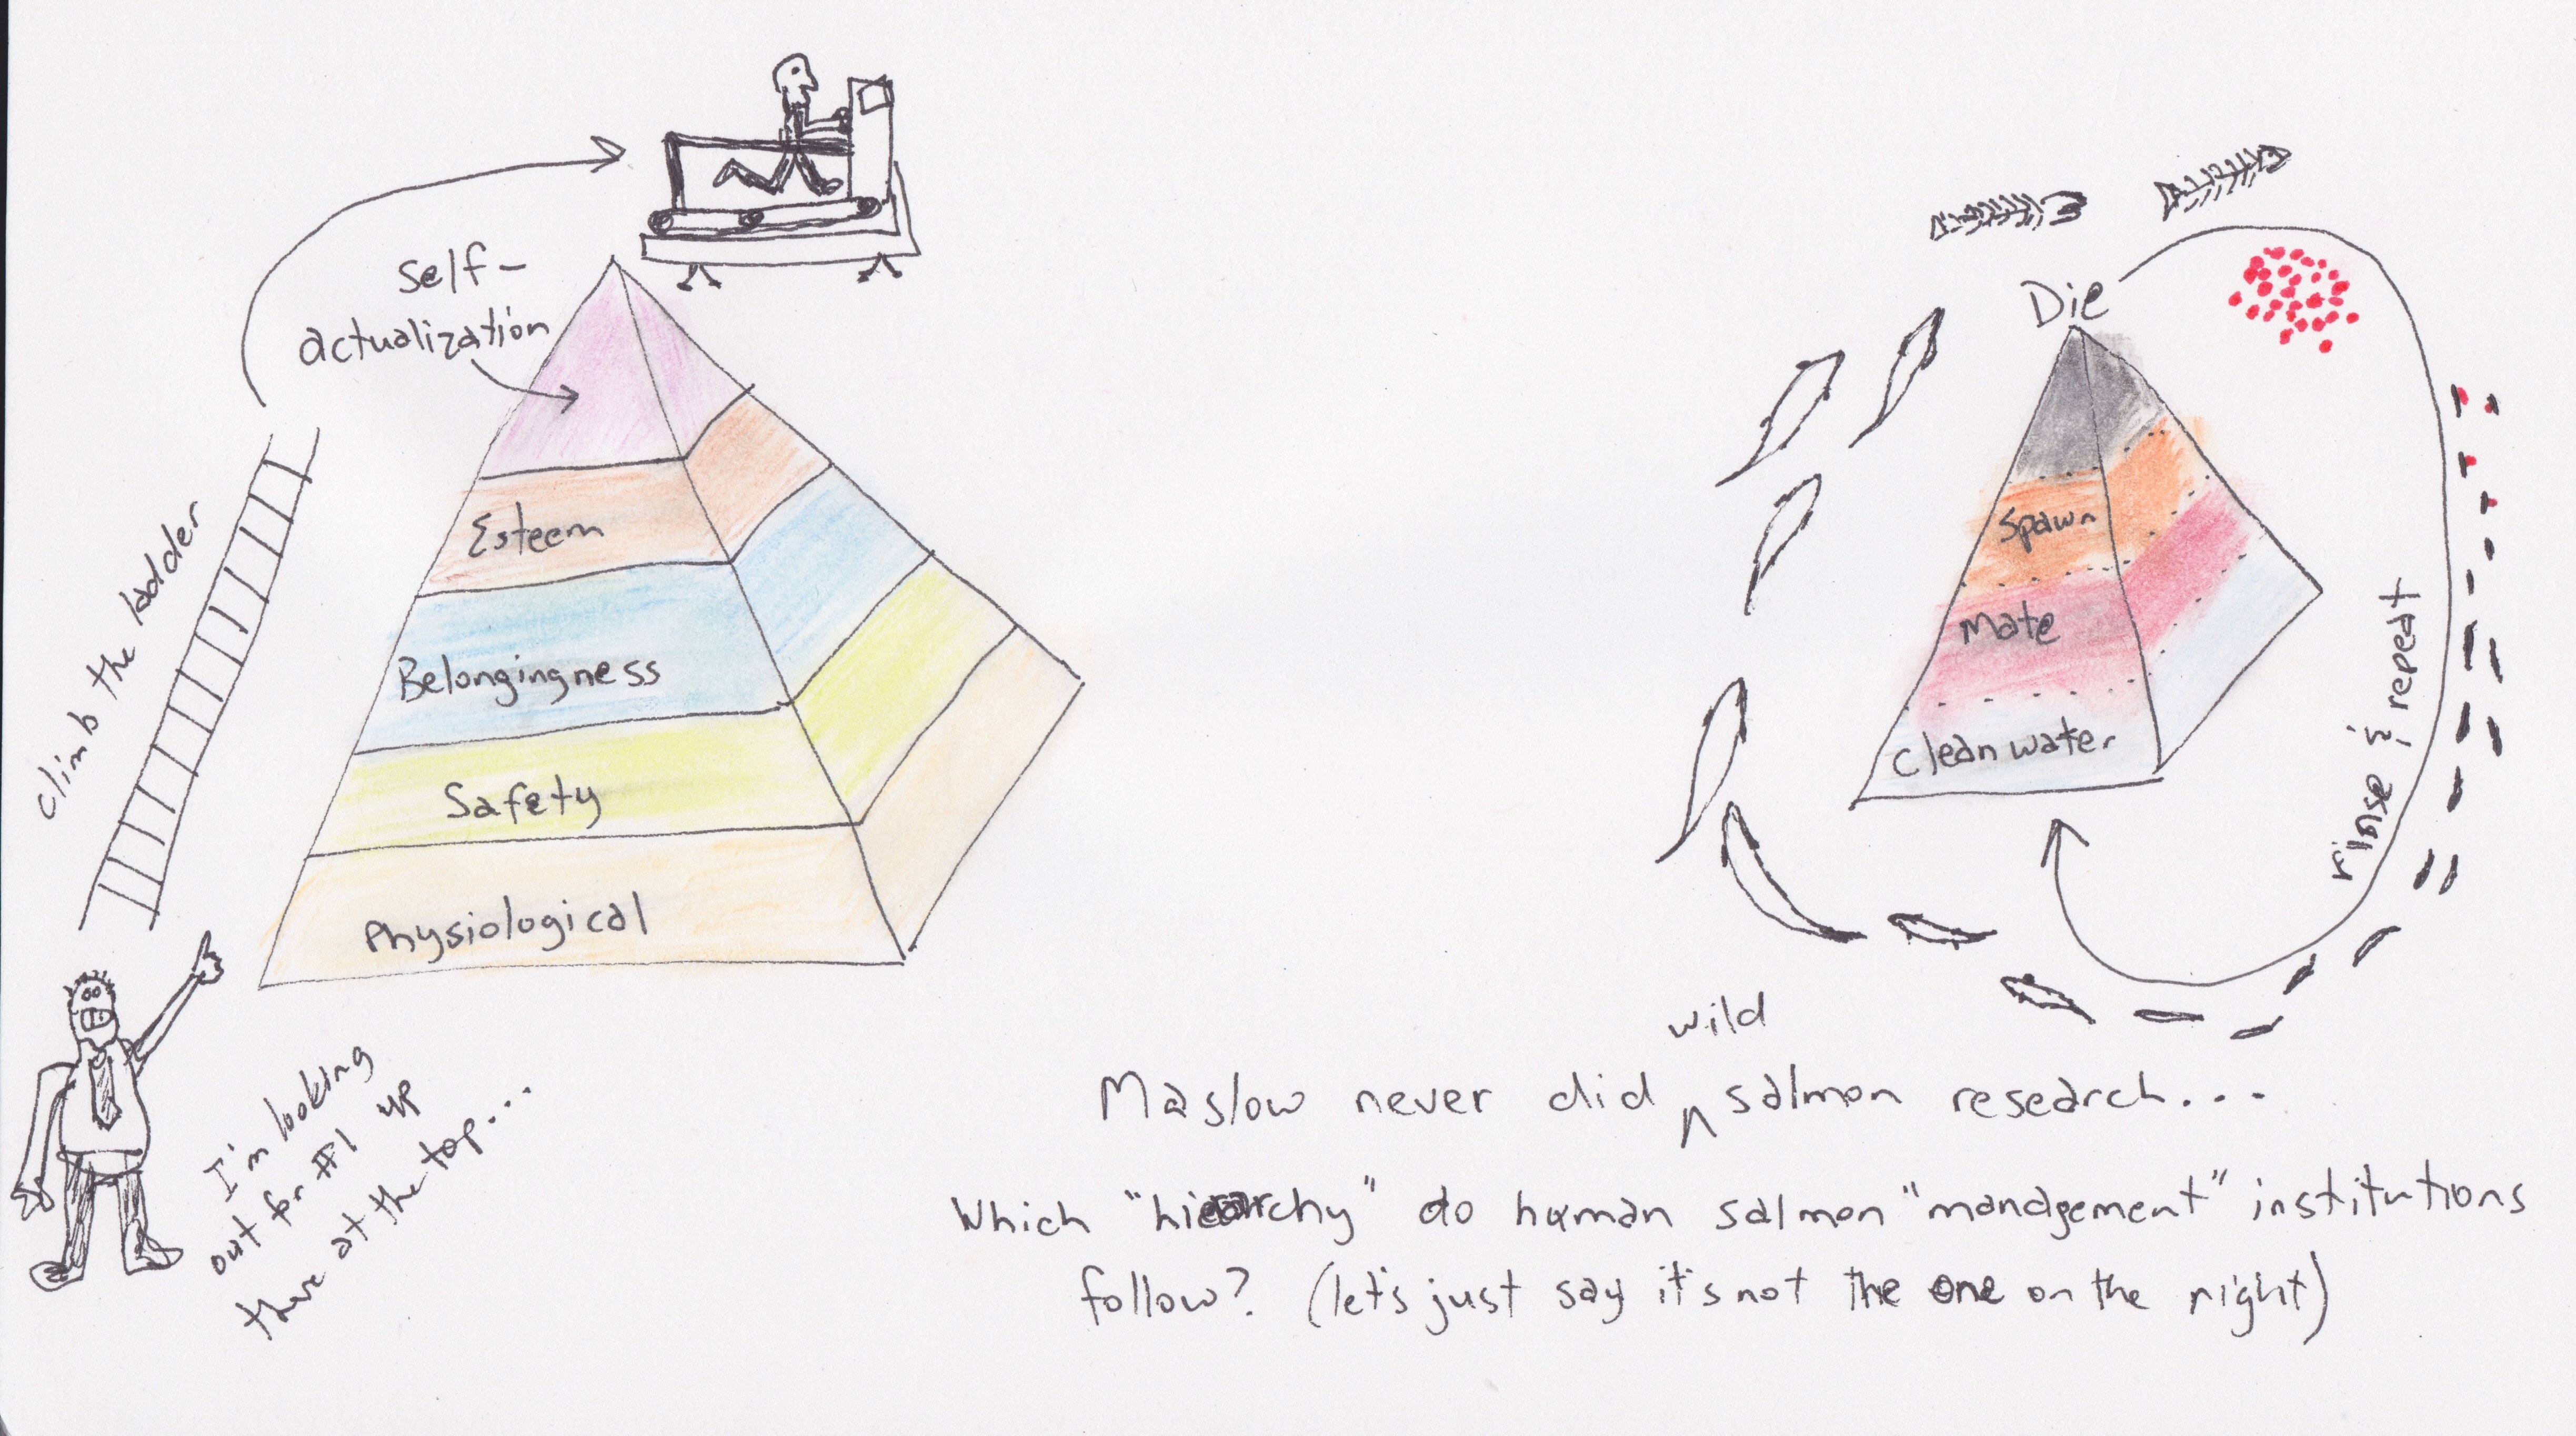 self-
actualization
Esteem
Belongingness
Safety
Physiological
climb the ladder
I'm looking
out for #1 up
there at the top...
Die
Spawn
Mate
Clean water
rinse & repeat
wild
Maslow never did ^ salmon research...
Which "hierarchy" do human salmon "management" institutions
follow? (let's just say it's not the one on the right)